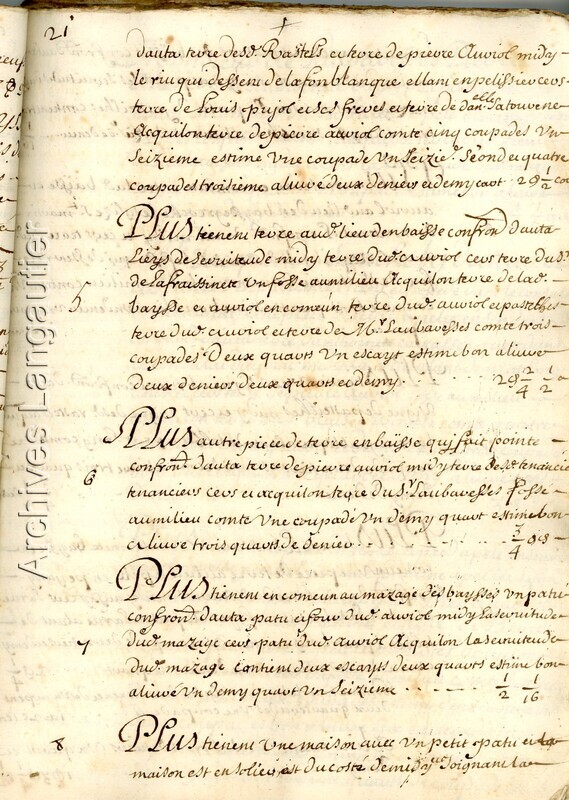 21
dauta terre desd. Rastels et terre de pierre auviol midy
le riu qui dessent de la fon blanque et lani en pelissier cers
terre de Louis pujol et ses freres et terre de dan.elle Latourene
Acquilon terre de pierre auviol comte cinq coupades un
seizieme estimé une coupade un seizie. seond et quatre
coupades troisieme alivré deux deniers et demy cart . 2d 1/2
5
PLus tienent terre aud. lieu de baisse confron. dauta
Lieys de servitude midy terre dud. auviol cers terre du s.r
de la fraissinete un fosse au milieu Acquilon terre de lad.
baysse et auviol en comeun terre dud. auviol et
terre dud. auviol et terre de M.r Laubavesses comte trois
coupades deux quarts un escayt estimé bon alivré
deux deniers deux quarts et demy . . . . . 2d 2/4 1/2
6
PLus autre piece de terre en baïsse quj fait pointe
confron. dauta terre de pierre auviol midy terre
tenanciers cers et acquilon terre du s.r Laubavesses fossé
au milieu comté une coupade un demy quart estimé bon
alivré trois quarts de denier . . . . . 3/4
7
PLus tienent en comeun au mazage des baysses un patu
confron. dauta patu et four dud. auviol midy La servitude
dud. mazage cers patu dud. auviol Acquilon la servitude
dud. mazage contient deux escayts deux quarts estimé bon
alivré un demy quart un seizieme . . . . . 1/2 1/16
8
PLus tienent une maison avec un petit patu et
maison est en solier est du costé de midy joignant la
Archives Langautier